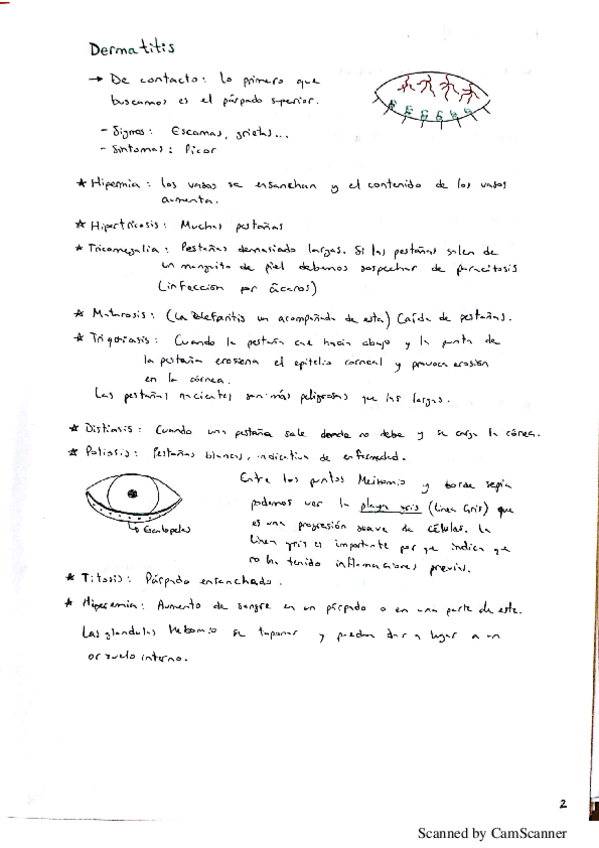 Dermatitis
→ De contacto: lo primero que
buscamos es el párpado superior.
- Signos: Escamas, grietas...
- Síntomas: Picor
* Hipermia: los vasos se ensanchan y el contenido de los vasos
aumenta.
* Hipertricosis: Muchas pestañas
* Tricomegalia: Pestañas demasiado largas. Si las pestañas salen de
un manguito de piel debemos sospechar de paracitosis
(infección por ácaros)
* Madarosis: (La blefaritis va acompañada de esta) Caída de pestañas.
* Triquiasis: Cuando la pestaña cae hacia abajo y la punta de
la pestaña erosiona el epitelio corneal y provoca erosión
en la córnea.
Las pestañas nacientes son más peligrosas que las largas.
* Distiasis: Cuando una pestaña sale donde no debe y se carga la córnea.
* Poliosis: Pestañas blancas, indicativa de enfermedad.
Entre los puntos Meibomio y borde
podemos ver la playa gris (Línea Gris) que
es una progresión suave de células. La
línea gris es importante por que indica que
no ha tenido inflamaciones previas.
* Titosis: Párpado ensanchado.
* Hiperemia: Aumento de sangre en un párpado o en una parte de este.
Las glandulas Meibomio se taponan y pueden dar a lugar a un
orzuelo interno.
2
Scanned by CamScanner